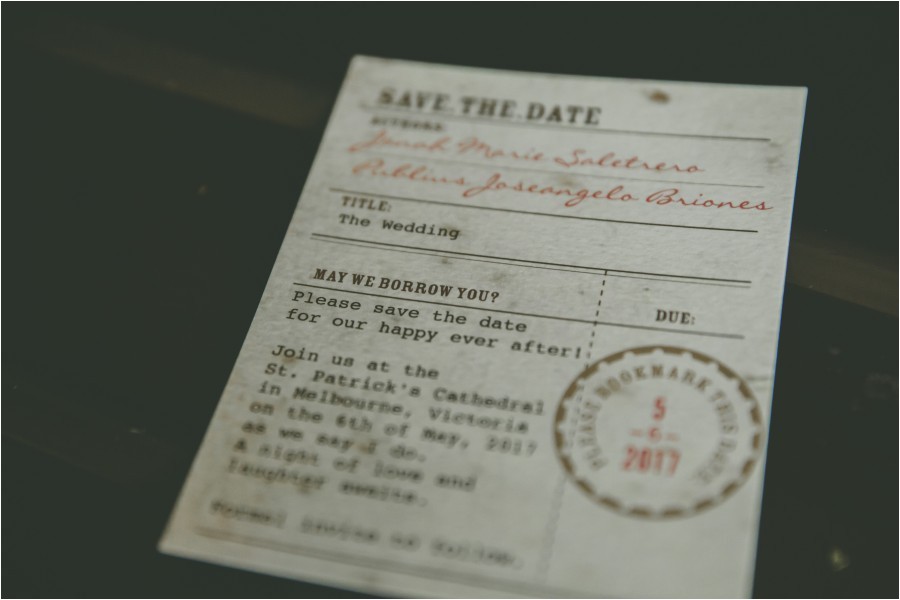 SAVE THE DATE
AUTHORS:
Jonah Marie Saletrero
Publius Joseangelo Briones
TITLE:
The Wedding
MAY WE BORROW YOU?
Please save the date
for our happy ever after!
Join us at the
St. Patrick's Cathedral
in Melbourne, Victoria
on the 6th of May, 2017
as we say I do.
A night of love and
laughter awaits.
Formal invite to follow.
DUE:
PLEASE BOOKMARK THIS DATE
5
-6-
2017